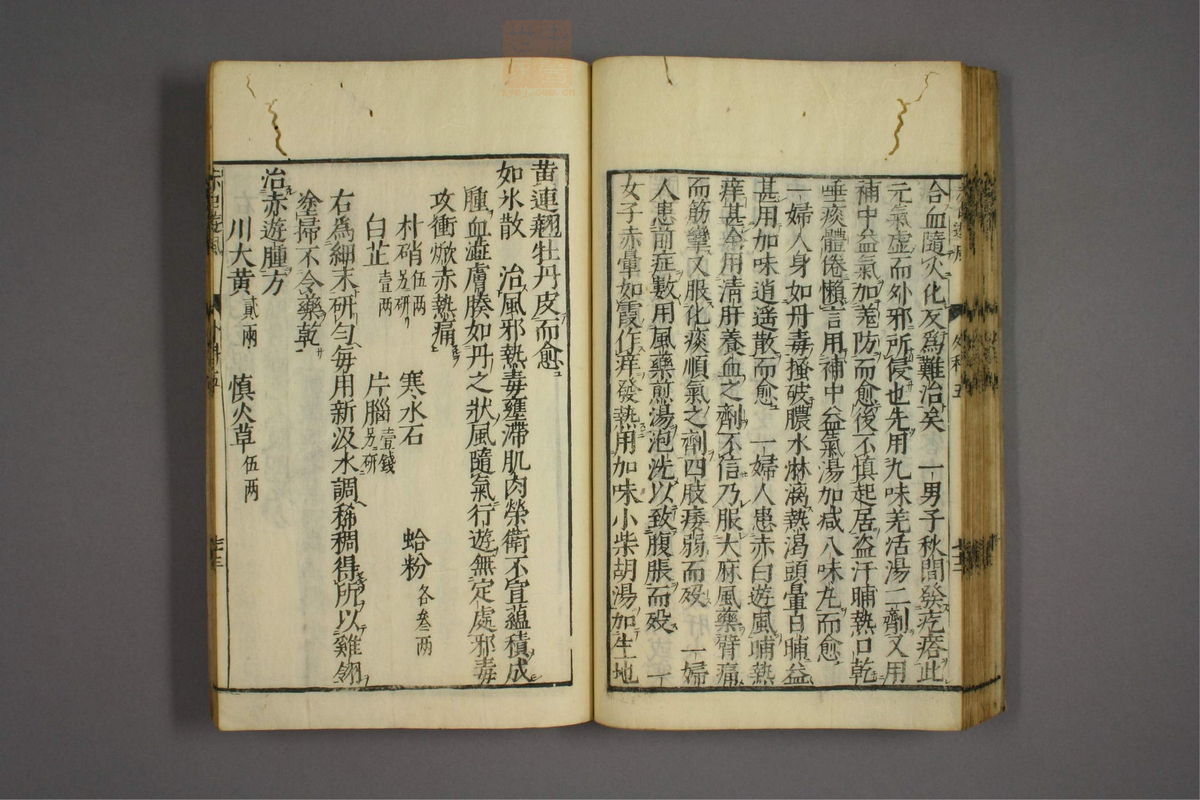 合血隨火化反為難治矣 一男子秋間發疙瘩此
元氣虛而外邪所侵也先用九味羌活湯二劑又用
補中益氣加羌防而愈後不慎起居盗汗晡熱口乾
唾痰體倦懶言用補中益氣湯加减八味丸而愈
一婦人身如丹毒搔破膿水淋漓熱渴頭暈日晡益
甚用加味逍遥散而愈 一婦人患赤白遊風晡熱
痒甚余用清肝養血之劑不信乃服大麻風藥臂痛
而筋攣又服化痰順氣之劑四肢痿弱而殁 一婦
人患前症數用風藥煎湯泡洗以致腹脹而殁 一
女子赤暈如霞作痒發熱用加味小柴胡湯加生地
黄連翹牡丹皮而愈
如氷散 治風邪熱毒壅滯肌肉榮衛不宣蘊積成
腫血澁膚腠如丹之狀風隨氣行遊無定處邪毒
攻衝焮赤熱痛
朴硝伍兩另研 寒水石 蛤粉各叁兩
白芷壹兩 片腦壹錢另研
右為細末研匀每用新汲水調稀稠得所以雞翎
塗掃不令藥乾
治赤遊腫方
川大黄貳兩 慎火草伍兩